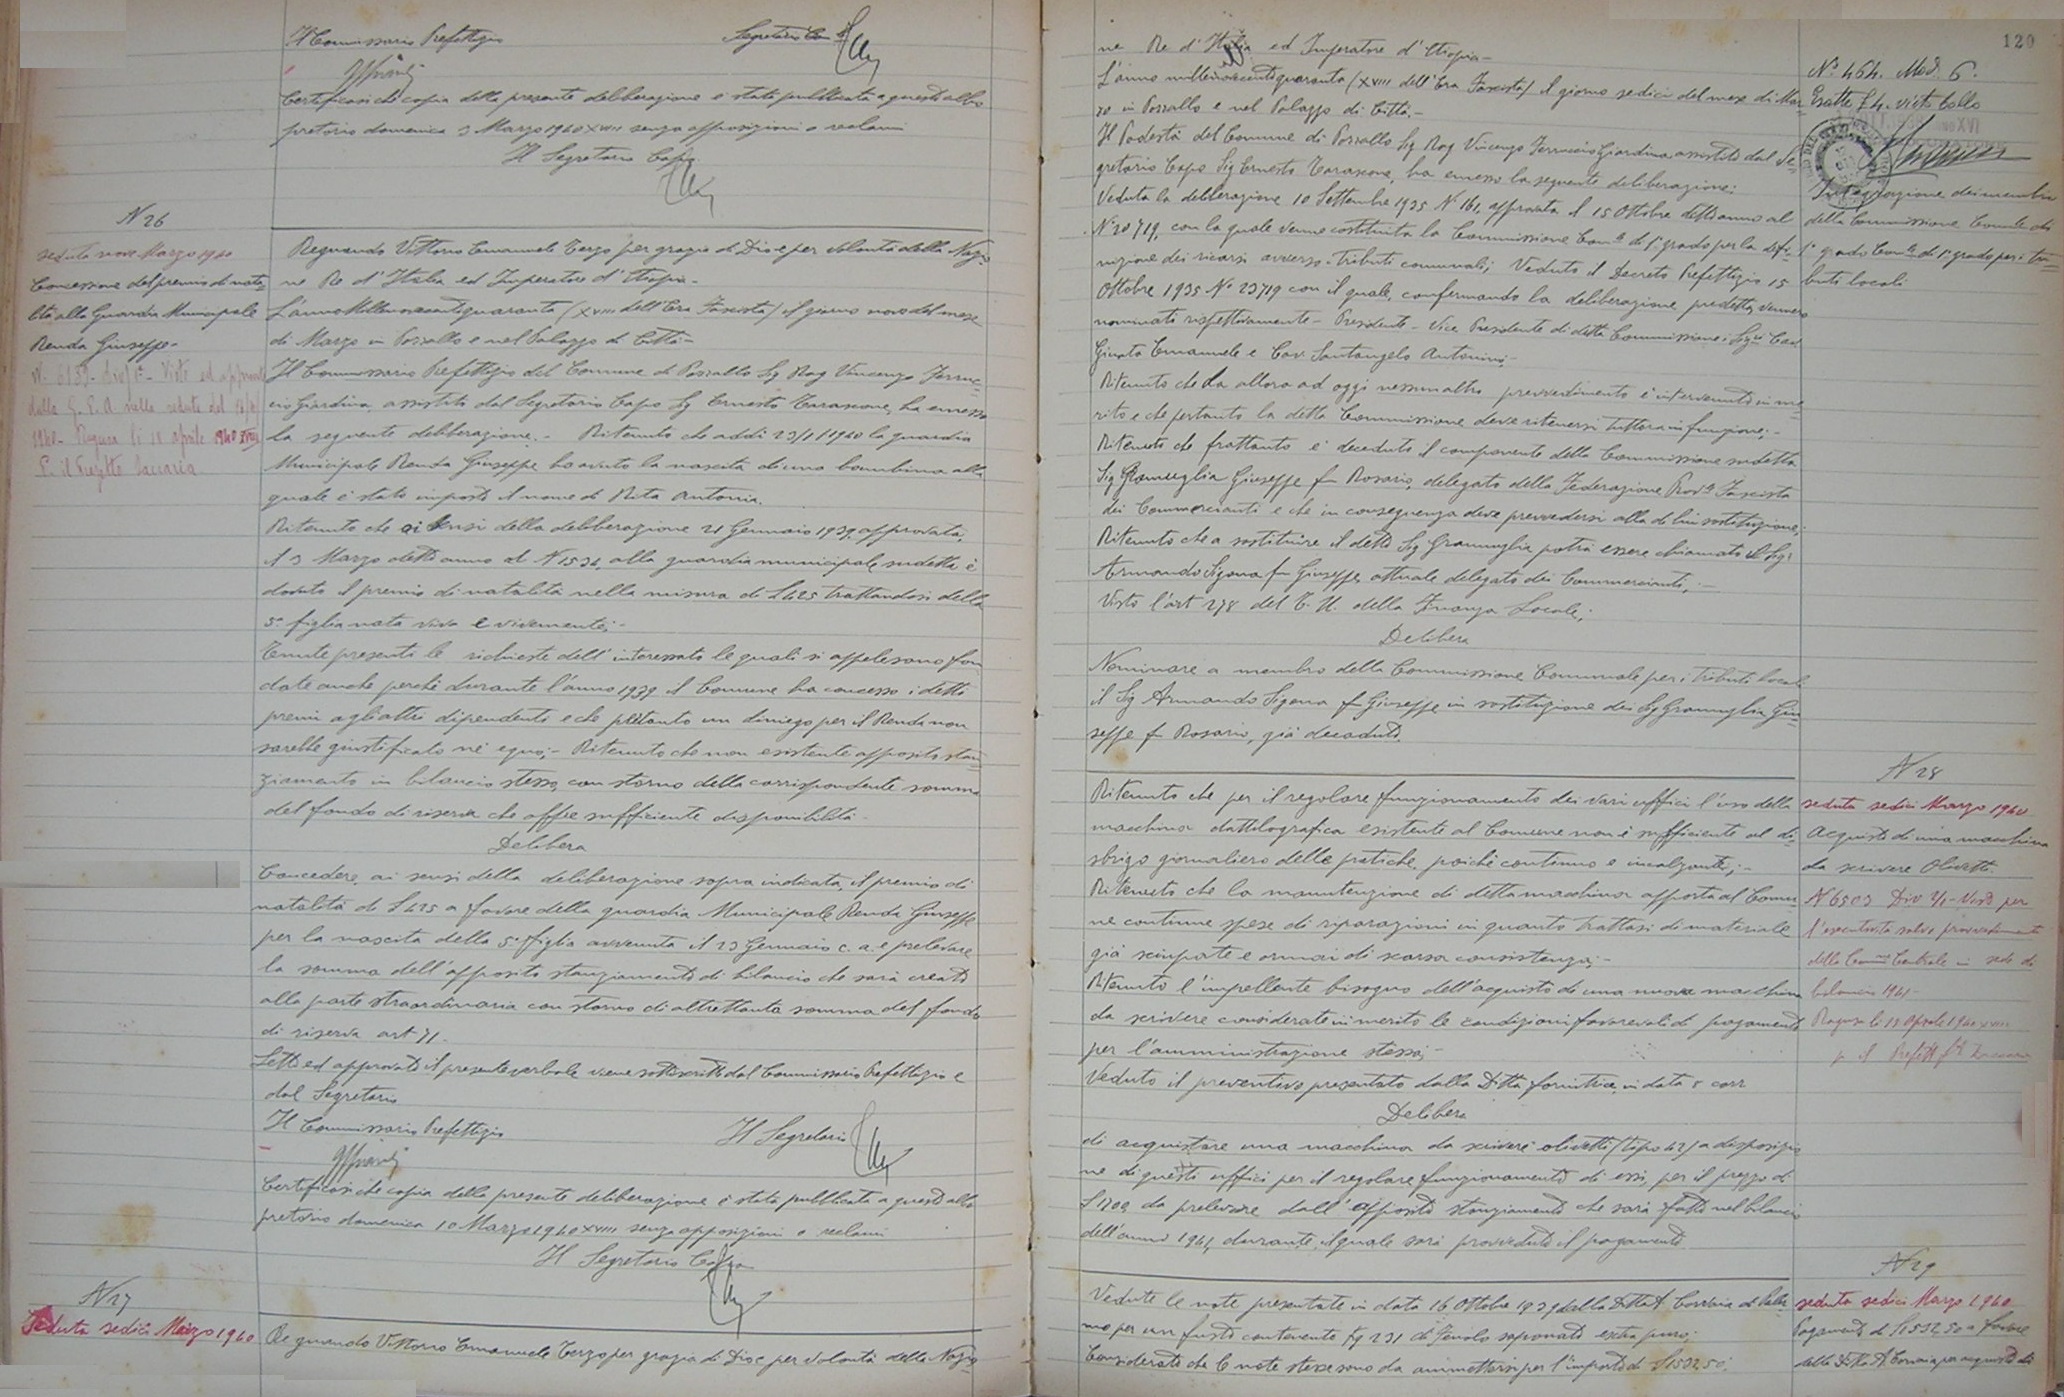 Il Commissario Prefettizio
Segretario
Certificasi che copia della presente deliberazione è stata pubblicata a questo albo
pretorio domenica 3 Marzo 1940 XVIII senza opposizioni o reclami
Il Segretario Capo
N 26
seduta nove Marzo 1940
Concessione del premio di nata
lità alla Guardia Municipale
Renda Giuseppe-
Visto ed approvato
dalla G. P. A. nella seduta del
1940- Ragusa li 18 aprile 1940 XVIII
P. il Prefetto
Regnando Vittorio Emanuele Terzo per grazia di Dio e per volontà della Nazio
ne Re d'Italia ed Imperatore d'Etiopia-
L'anno Millenovecentoquaranta (XVIII dell'Era Fascista) il giorno nove del mese
di Marzo in Pozzallo e nel Palazzo di Città-
Il Commissario Prefettizio del Comune di Pozzallo Sig Rag Vincenzo Ferruc-
cio Giardina, assistito dal Segretario Capo Sig Ernesto Tarascone, ha emesso
la seguente deliberazione.- Ritenuto che addì 23/1/1940 la guardia
Municipale Renda Giuseppe ha avuto la nascita di una bambina alla
quale è stato imposto il nome di Rita Antonia.
Ritenuto che ai sensi della deliberazione 21 Gennaio 1939, approvata,
il 3 Marzo detto anno al N 1534, alla guardia municipale sudetta è
dovuto il premio di natalità nella misura di L 425 trattandosi della
5° figlia nata viva e vivemente;-
Tenute presenti le richieste dell'interessato le quali si appalesano fon
date anche perchè durante l'anno 1939 il Comune ha concesso i detti
premi agli altri dipendenti e che pertanto un diniego per il Renda non
sarebbe giustificato nè equo;- Ritenuto che non esistente apposito stan-
ziamento in bilancio stesso, con storno della corrispondente somma
del fondo di riserva che offre sufficiente disponibilità-
Delibera
Concedere, ai sensi della deliberazione sopra indicata, il premio di
natalità di L 425 a favore della guardia Municipale Renda Giuseppe
per la nascita della 5° figlia avvenuta il 23 Gennaio c. a. e prelevare
la somma dell'apposito stanziamento di bilancio che sarà creato
alla parte straordinaria con storno di altrettanta somma del fondo
di riserva art 71.
Letto ed approvato il presente verbale viene sottoscritto dal Commissario Prefettizio e
dal Segretario
Il Commissario Prefettizio
Il Segretario
Certificasi che copia della presente deliberazione è stata pubblicata a questo albo
pretorio domenica 10 Marzo 1940 XVIII senza opposizioni o reclami
Il Segretario Capo
N 27
Seduta sedici Marzo 1940
Regnando Vittorio Emanuele Terzo per grazia di Dio e per volontà della Nazio
120
ne Re d'Italia ed Imperatore d'Etiopia-
L'anno millenovecentoquaranta (XVIII dell'Era Fascista) il giorno sedici del mese di Mar
zo in Pozzallo e nel Palazzo di Città.-
Il Podestà del Comune di Pozzallo Sig Rag Vincenzo Ferruccio Giardina, assistito dal Se
gretario Capo Sig Ernesto Tarascone, ha emesso la seguente deliberazione:
Veduta la deliberazione 10 Settembre 1935 N° 161, approvata il 15 Ottobre detto anno al
N° 20719, con la quale venne costituita la Commissione Com.le di 1° grado per la defi-
nizione dei ricorsi avverso i tributi comunali; Veduto il Decreto Prefettizio 15
Ottobre 1935 N° 23719 con il quale, confermando la deliberazione predetta, vennero
nominati rispettivamente- Presidente- Vice Presidente di detta Commissione i Sigri Cav
Emanuele e Cav. Santangelo Antonino;-
Ritenuto che da allora ad oggi nessun altro provvedimento è intervenuto in me
rito e che pertanto la detta Commissione deve ritenersi tuttora in funzione;-
Ritenuto che frattanto è decaduto il componente della Commissione sudetta
Sig Gramuglia Giuseppe f Rosario, delegato della Federazione Prov.le Fascista
dei Commercianti e che in conseguenza deve provvedersi alla di lui sostituzione;
Ritenuto che a sostituire il detto Sig Gramuglia potrà essere chiamato il Sig:
Armando Sigona fu Giuseppe, attuale delegato dei Commercianti;-
Visto l'art 278 del T. U. della Finanza Locale;
Delibera
Nominare a membro della Commissione Comunale per i Tributi locali
il Sig Armando Sigona f Giuseppe in sostituzione del Sig Gramuglia Giu
seppe f Rosario, già decaduto.
N° 464. Mod. 6.
Esatte L 4. visto bollo
Integrazione dei membri
della Commissione Comle di
1° grado Com.le di 1° grado per i tri-
buti locali
Ritenuto che per il regolare funzionamento dei vari uffici l'uso della
macchina dattilografica esistente al Comune non è sufficiente al di-
sbrigo giornaliero delle pratiche, poichè continuo e incalzante;-
Ritenuto che la manutenzione di detta macchina apporta al Comu-
ne continue spese di riparazioni in quanto trattasi di materiale
già sciupato e ormai di scarsa consistenza;-
Ritenuto l'impellente bisogno dell'acquisto di una nuova macchina
da scrivere considerate in merito le condizioni favorevoli di pagamento
per l'amministrazione stessa;-
Veduto il preventivo presentato dalla Ditta fornitrice, in data 5 corr
Delibera
di acquistare una macchina da scrivere olivetti (tipo 42) a disposizio
ne di questi uffici per il regolare funzionamento di essi, per il prezzo di
L 1700 da prelevare dall'apposito stanziamento che sarà fatto nel bilancio
dell'anno 1941, durante il quale sarà provveduto il pagamento
N 28
seduta sedici Marzo 1940
Acquisto di una macchina
da scrivere Olivetti.
N 6503 Div 2/1- Visto per
l'esecutività salvo provvedimenti
della Comm.ne Centrale in sede di
bilancio 1941-
Ragusa li 12 Aprile 1940 XVIII
p il Prefetto
N 29
seduta sedici Marzo 1940
Pagamento di L 1532,50 a favore
della Ditta A. Correra per acquisto di
Vedute le note presentate in data 16 Ottobre 1939 dalla Ditta A Correra di Paler
mo per un fusto contenente Kg 231 di Fenolo saponato extra puro;
Considerato che le note stesse sono da ammettersi per l'importo di L 1532,50;